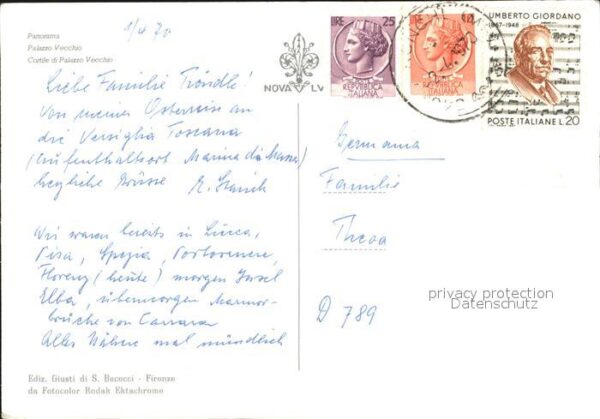 Panorama
Palazzo Vecchio
Cortile di Palazzo Vecchio
1/4 70
Liebe Familie Tröndle!
Von meiner Osterreise an
die Versiglia Toscana
(Aufenthaltsort Marina di Massa)
herzliche Grüsse
Wir waren bereits in Lucca,
Pisa, Spezia, Portovenere,
Florenz (heute) morgen Insel
Elba, übermorgen Marmor-
brüche von Carrara
Alles Nähere mal mündlich
Ediz. Giusti di S. Becocci - Firenze
da Fotocolor Kodak Ektachrome
NOVA LV
LIRE 25
REPVBBLICA
ITALIANA
REPVBBLICA
ITALIANA
UMBERTO GIORDANO
1867-1948
POSTE ITALIANE L.20
Germania
Familie
D 789
privacy protection
Datenschutz